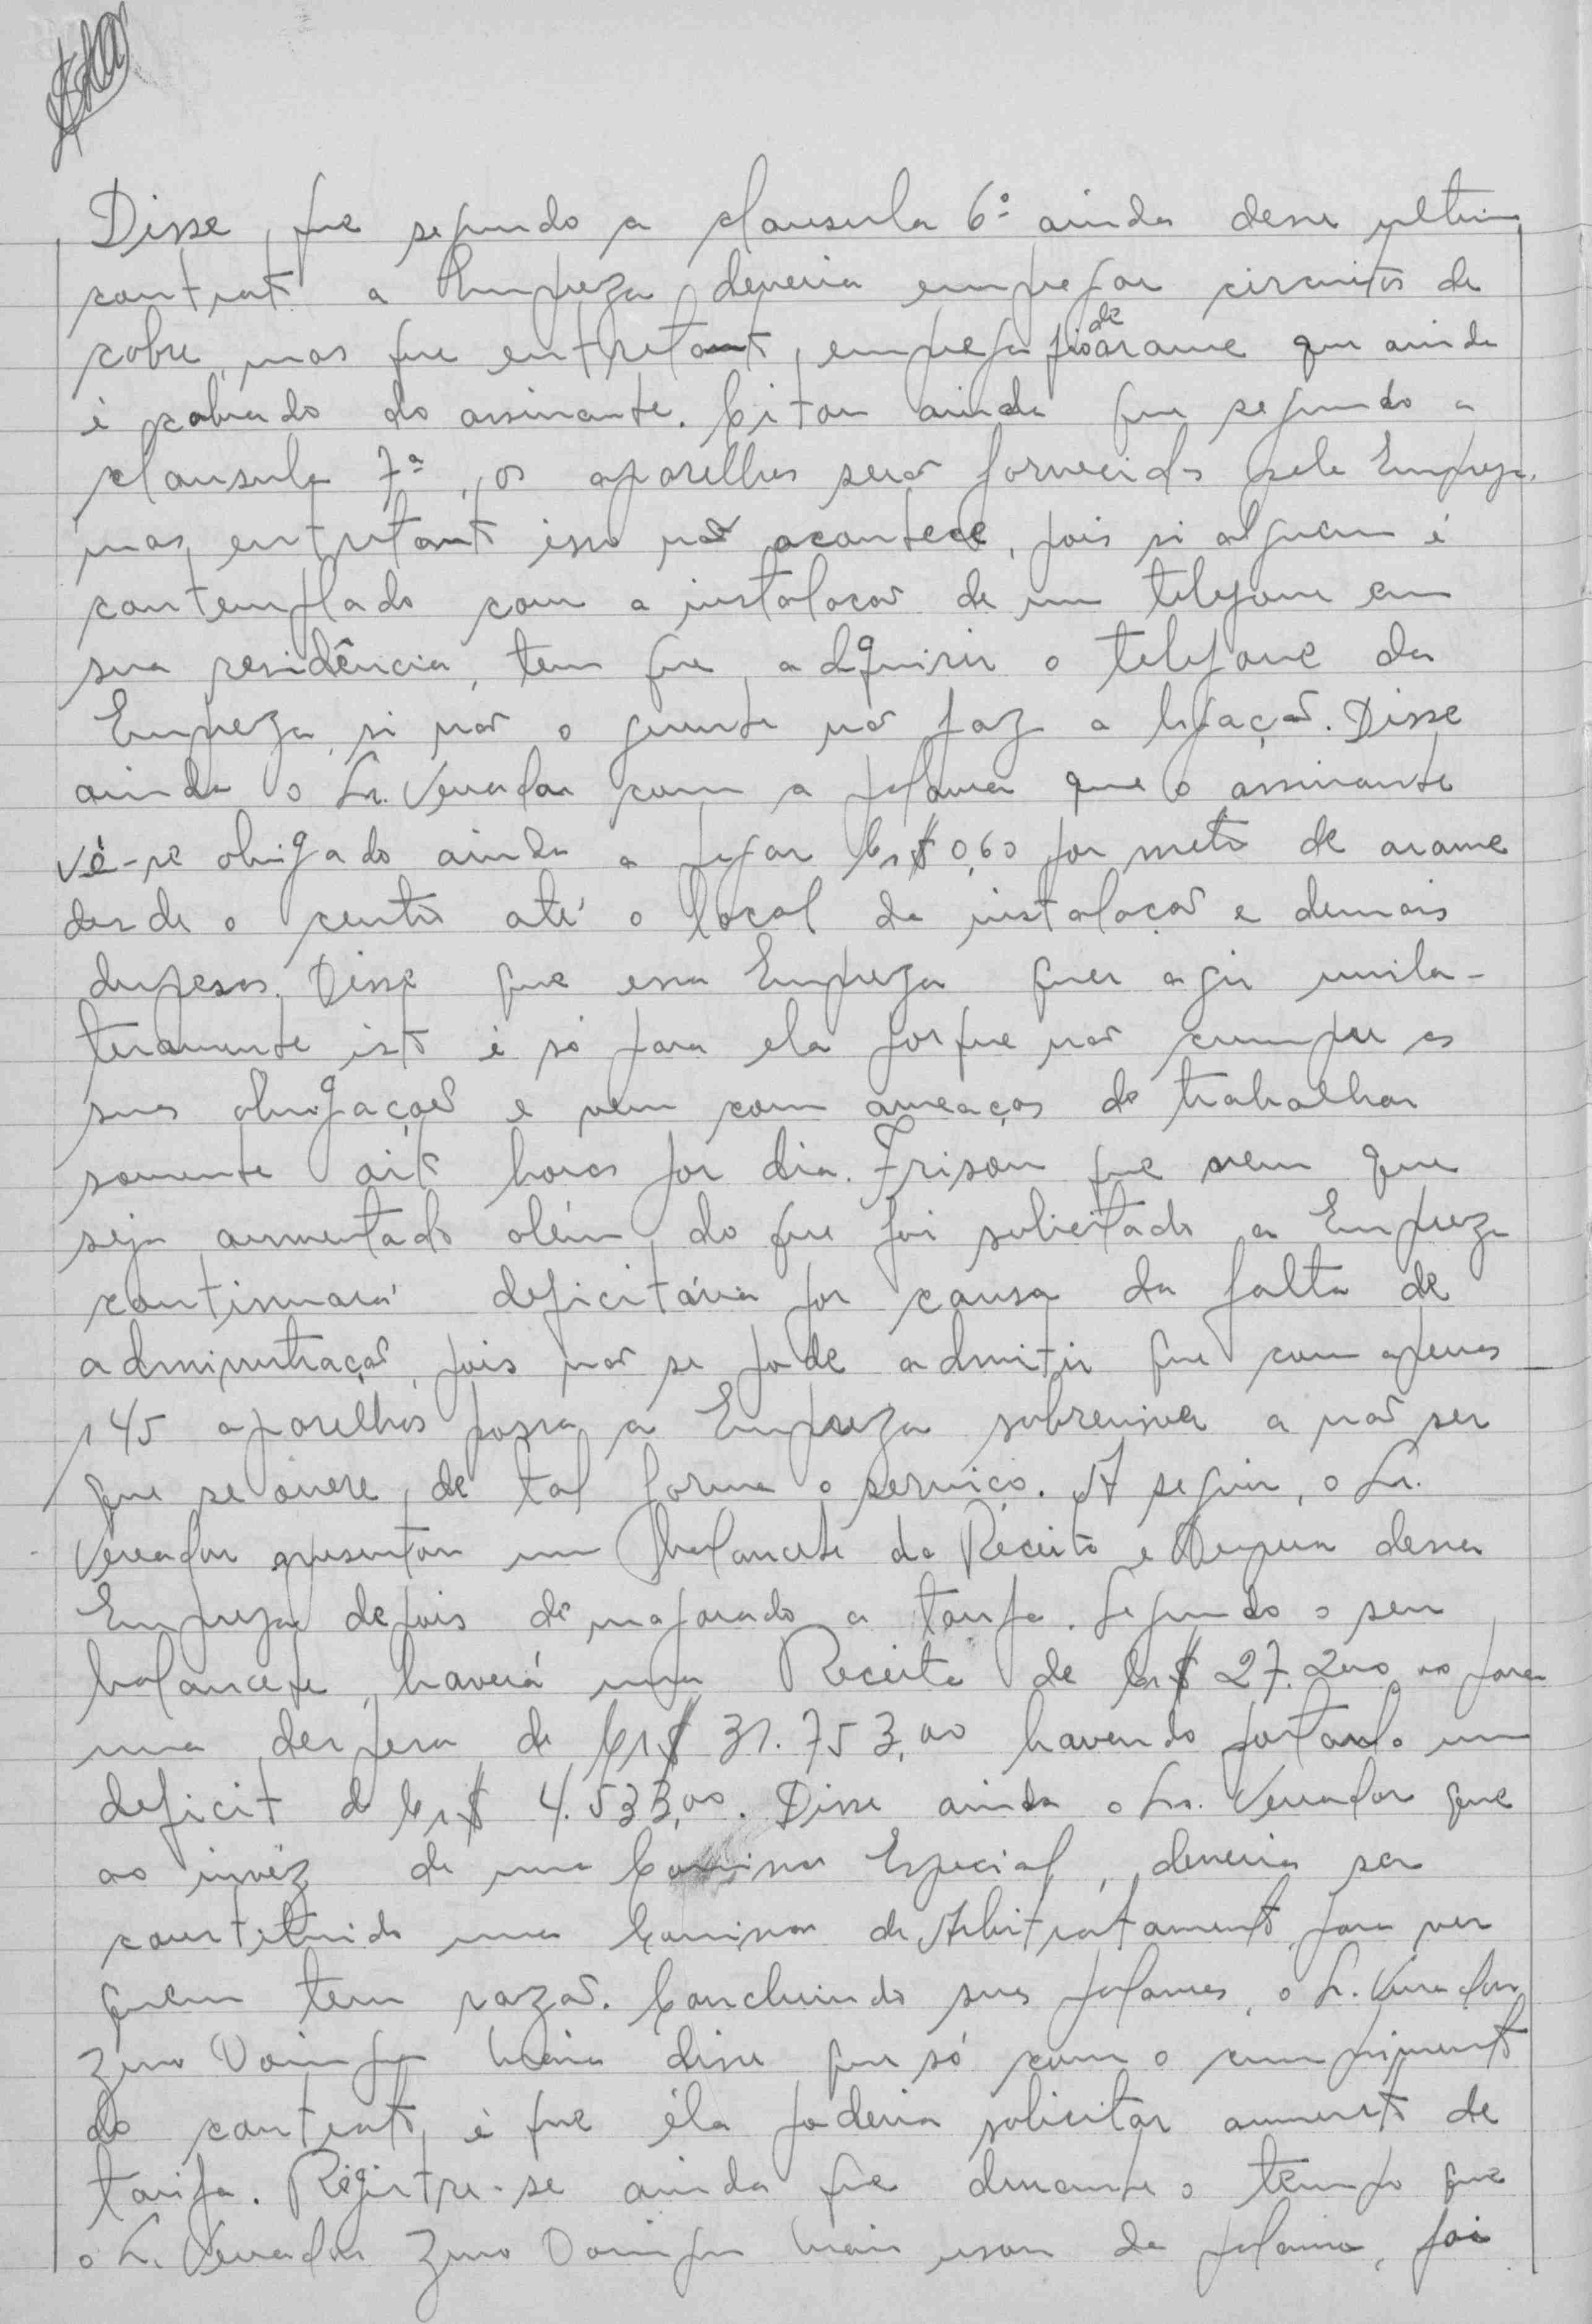 Disse, que segundo a clausula 6ª ainda desse ultimo
contrato a Empreza deveria empregar circuitos de
cobre, mas que entretanto, emprega fio de arame que ainda
é cobrado do assinante. Citou ainda que segundo a
clausula 7ª, os aparelhos serão fornecidos pela Empreza,
mas entretanto isso não acontece, pois si alguem é
contemplado com a instalacão de um telefone em
sua residência, tem que adquirir o telefone da
Empreza, si não o gerente não faz a ligação. Disse
ainda o Sr. Vereador com a palavra que o assinante
vê-se obrigado ainda a pagar Cr$ 0,60 por metro de arame
desde o centro até o local da instalação e demais
despesas. Disse que essa Empreza quer agir unila-
teramente isto é só para ela porque não cumpre as
suas obrigações e vem com ameaças de trabalhar
somente oito horas por dia. Frisou que nem que
seja aumentado além do que foi solicitado a Empreza
continuará deficitária por causa da falta de
administração, pois não se pode admitir que com apenas
145 aparelhos possa a Empreza sobreviver a não ser
que se onere de tal forma o serviço. A seguir, o Sr.
Vereador apresentou um Balancete da Receita e Despesa dessa
Empreza depois de majorado a tarifa. Segundo o seu
balancete, haverá uma Receita de Cr$ 27.200,00 para
uma despesa de Cr$ 31.753,00 havendo portanto um
deficit de Cr$ 4.533,00. Disse ainda o Sr. Vereador que
ao invéz de uma Comissão Especial, deveria ser
constituida uma Comissão de Arbitratamento para ver
quem tem razão. Concluindo suas palavras, o Sr. Vereador
Zeno disse que só com o cumprimento
do contrato, é que éla poderia solicitar aumento de
tarifa. Registre-se ainda que durante o tempo que
o Sr. Vereador Zeno usou da palavra, foi